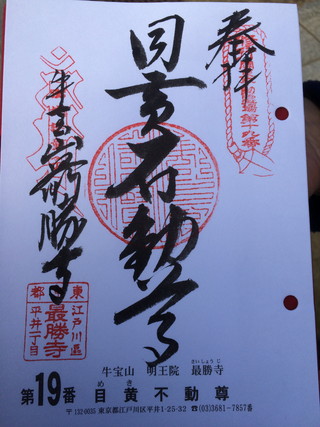 奉拝
目黄不動尊
牛宝山最勝寺
第十九番
東京都
江戸川區
最勝寺
平井一丁目
牛宝山 明王院 最勝寺
さいしょうじ
第19番 目黄不動尊
めき
〒132-0035 東京都江戸川区平井1-25-32 ☎(03)3681-7857番